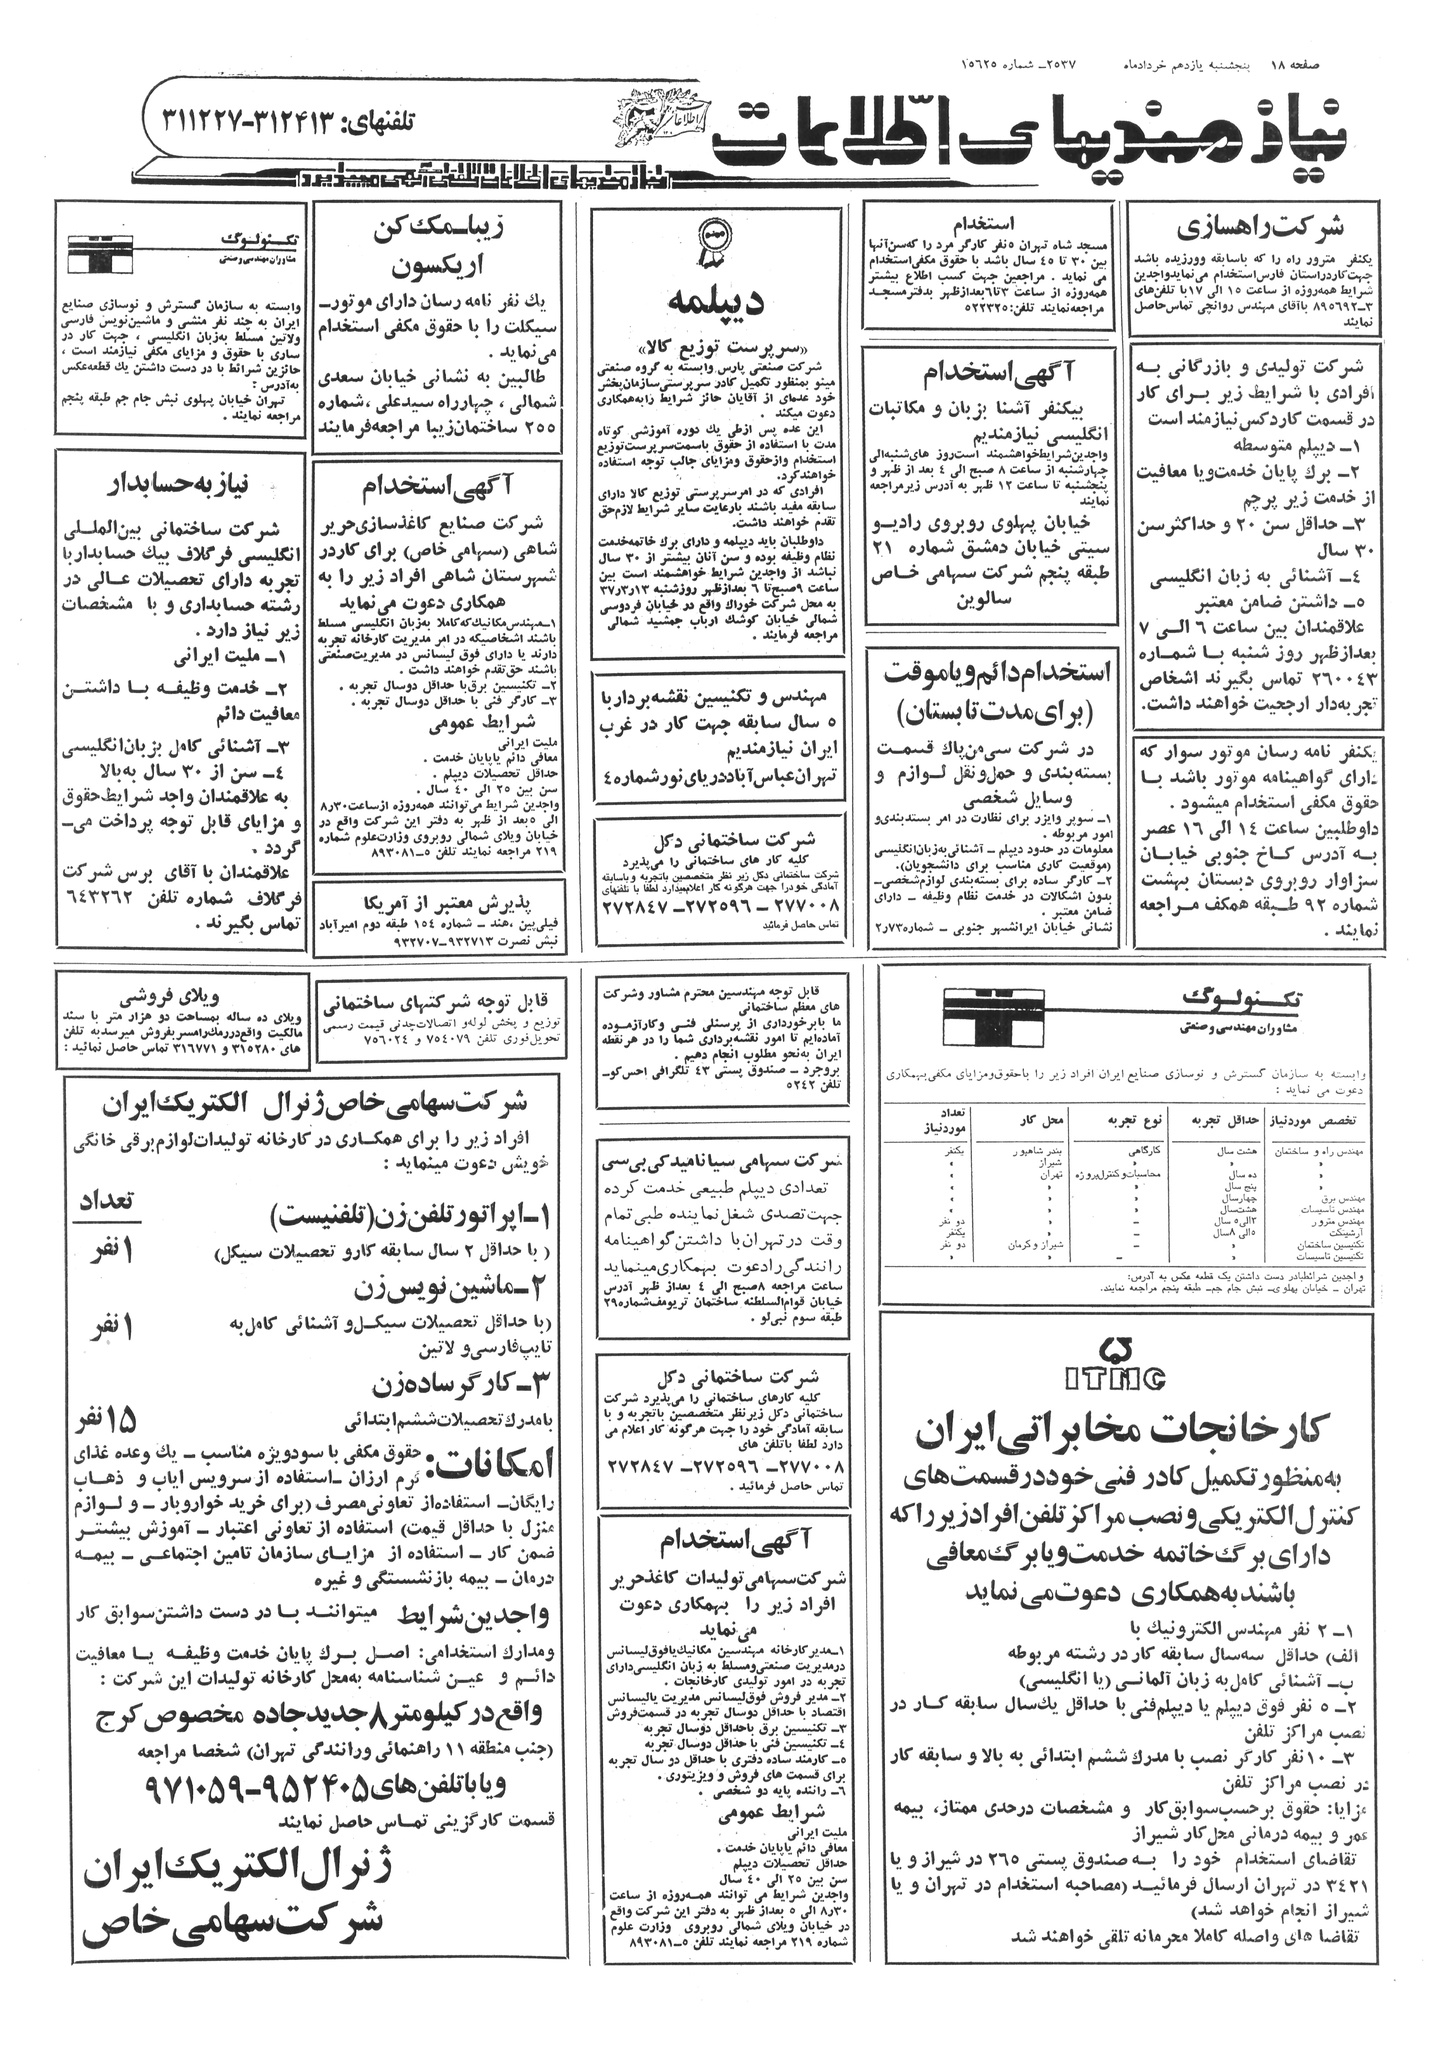 صفحه ۱۸ پنجشنبه یازدهم خردادماه ۲۵۳۷ـ شماره ۱۵۶۲۵
نیازمندیهای اطلاعات
تلفنهای: ۳۱۲۴۱۳-۳۱۱۲۲۷
نیازمندیهای اطلاعات تلفنی آگهی میپذیرد
شرکت راهسازی
یکنفر مترور راه را که باسابقه وورزیده باشد
جهت‌کاردراستان فارس‌استخدام می‌نمایدواجدین
شرایط همه‌روزه از ساعت ۱۵ الی ۱۷با تلفن‌های
۳ـ۸۹۵۶۹۲ باآقای مهندس روانچی تماس‌حاصل
نمایند
شرکت تولیدی و بازرگانی به
افرادی با شرایط زیر برای کار
در قسمت کاردکس‌نیازمند است
۱ـ دیپلم متوسطه
۲ـ برك پایان خدمت‌ویا معافیت
از خدمت زیر پرچم
۳ـ حداقل سن ۲۰ و حداکثرسن
۳۰ سال
۴ـ آشنائی به زبان انگلیسی
۵ـ داشتن ضامن معتبر
علاقمندان بین ساعت ۶ الی ۷
بعدازظهر روز شنبه با شماره
۲۶۰۰۴۳ تماس بگیرند اشخاص
تجربه‌دار ارجحیت خواهند داشت.
یکنفر نامه رسان موتور سوار که
دارای گواهینامه موتور باشد با
حقوق مکفی استخدام میشود .
داوطلبین ساعت ۱۴ الی ۱۶ عصر
به آدرس کاخ جنوبی خیابان
سزاوار روبروی دبستان بهشت
شماره ۹۲ طبقه همکف مراجعه
نمایند .
استخدام
مسجد شاه تهران ۵نفر کارگر مرد را که‌سن‌آنها
بین ۳۰ تا ۴۵ سال باشد با حقوق مکفی‌استخدام
می نماید . مراجعین جهت کسب اطلاع بیشتر
همه‌روزه از ساعت ۳تا۶بعدازظهر بدفترمسجد
مراجعه‌نمایند تلفن:۵۲۲۳۲۵
آگهی استخدام
بیکنفر آشنا بزبان و مکاتبات
انگلیسی نیازمندیم
واجدین‌شرایط‌خواهشمند است‌روز های‌شنبه‌الی
چهارشنبه از ساعت ۸ صبح الی ۴ بعد از ظهر و
پنجشنبه تا ساعت ۱۲ ظهر به آدرس زیرمراجعه
نمایند
خیابان پهلوی روبروی رادیو
سیتی خیابان دمشق شماره ۲۱
طبقه پنجم شرکت سهامی خاص
سالوین
استخدام دائم ویا موقت
(برای مدت تابستان)
در شرکت سی‌من‌پاك قسمت
بسته‌بندی و حمل‌ونقل لوازم و
وسایل شخصی
۱ـ سوپر وایزر برای نظارت در امر بسته‌بندی‌و
امور مربوطه .
معلومات در حدود دیپلم ـ آشنائی‌به‌زبان‌انگلیسی
(موقعیت کاری مناسب برای دانشجویان).
۲ـ کارگر ساده برای بسته‌بندی لوازم‌شخصی‌ـ
بدون اشکالات در خدمت نظام وظیفه ـ دارای
ضامن معتبر .
نشانی خیابان ایرانشهر جنوبی ـ شماره۷۳ر۲
دیپلمه
«سرپرست توزیع کالا»
شرکت صنعتی پارس وابسته به گروه صنعتی
مینو بمنظور تکمیل کادر سرپرستی‌سازمان‌پخش
خود عده‌ای از آقایان حائز شرایط رابه‌همکاری
دعوت میکند .
این عده پس ازطی یك دوره آموزشی کوتاه
مدت با استفاده از حقوق باسمت‌سرپرست‌توزیع
استخدام وازحقوق ومزایای جالب توجه استفاده
خواهندکرد.
افرادی که در امرسرپرستی توزیع کالا دارای
سابقه مفید باشند بارعایت سایر شرایط لازم‌حق
تقدم خواهند داشت.
داوطلبان باید دیپلمه و دارای برك خاتمه‌خدمت
نظام وظیفه بوده و سن آنان بیشتر از ۳۰ سال
نباشد از واجدین شرایط خواهشمند است بین
ساعت ۹صبح‌تا ۶ بعدازظهر روزشنبه ۱۳ر۳ر۳۷
به محل شرکت خوراك واقع در خیابان فردوسی
شمالی خیابان کوشك ارباب جمشید شمالی
مراجعه فرمایند .
مهندس و تکنیسین نقشه‌بردار با
۵ سال سابقه جهت کار در غرب
ایران نیازمندیم
تهران‌عباس‌آباددریای نورشماره۴
شرکت ساختمانی دکل
کلیه کار های ساختمانی را می‌پذیرد
شرکت ساختمانی دکل زیر نظر متخصصین باتجربه و باسابقه
آمادگی خودرا جهت هرگونه کار اعلام‌میدارد لطفا با تلفنهای
۲۷۷۰۰۸ - ۲۷۲۵۹۶- ۲۷۲۸۴۷
تماس حاصل فرمائید
زیبا-مك کن
اریکسون
یك نفر نامه رسان دارای موتور-
سیکلت را با حقوق مکفی استخدام
می‌نماید .
طالبین به نشانی خیابان سعدی
شمالی ، چهارراه سیدعلی ، شماره
۲۵۵ ساختمان‌زیبا مراجعه‌فرمایند
آگهی استخدام
شرکت صنایع کاغذسازی‌حریر
شاهی (سهامی خاص) برای کاردر
شهرستان شاهی افراد زیر را به
همکاری دعوت می‌نماید
۱ـ‌مهندس‌مکانیك‌که‌کاملا به‌زبان انگلیسی مسلط
باشند اشخاصیکه در امر مدیریت کارخانه تجربه
دارند یا دارای فوق لیسانس در مدیریت‌صنعتی
باشند حق‌تقدم خواهند داشت .
۲ـ تکنیسین برق‌با حداقل دوسال تجربه .
۳ـ کارگر فنی با حداقل دوسال تجربه .
شرایط عمومی
ملیت ایرانی
معافی دائم یاپایان خدمت .
حداقل تحصیلات دیپلم .
سن بین ۲۵ الی ۴۰ سال .
واجدین شرایط می‌توانند همه‌روزه ازساعت۳۰ر۸
الی ۵بعد از ظهر به دفتر این شرکت واقع در
خیابان ویلای شمالی روبروی وزارت‌علوم شماره
۲۱۹ مراجعه نمایند تلفن ۵ـ۸۹۳۰۸۱
پذیرش معتبر از آمریکا
فیلی‌پین ،هند ـ شماره ۱۵۴ طبقه دوم امیرآباد
نبش نصرت ۹۳۲۷۱۳-۹۳۲۷۰۷
تکنولوگ
مشاوران مهندسی و صنعتی
وابسته به سازمان گسترش و نوسازی صنایع
ایران به چند نفر منشی و ماشین‌نویس فارسی
ولاتین مسلط به‌زبان انگلیسی ، جهت کار در
ساری با حقوق و مزایای مکفی نیازمند است ،
حائزین شرائط با در دست داشتن یك قطعه‌عکس
به‌آدرس :
تهران خیابان پهلوی نبش جام جم طبقه پنجم
مراجعه نمایند .
نیاز به حسابدار
شرکت ساختمانی بین‌المللی
انگلیسی فرگلاف بیك حسابداربا
تجربه دارای تحصیلات عالی در
رشته حسابداری و با مشخصات
زیر نیاز دارد .
۱ـ ملیت ایرانی
۲ـ خدمت وظیفه با داشتن
معافیت دائم
۳ـ آشنائی کامل بزبان‌انگلیسی
۴ـ سن از ۳۰ سال به‌بالا
به علاقمندان واجد شرایط‌حقوق
و مزایای قابل توجه پرداخت می‌ـ
گردد .
علاقمندان با آقای برس شرکت
فرگلاف شماره تلفن ۶۴۳۲۶۲
تماس بگیرند .
تکنولوگ
مشاوران مهندسی و صنعتی
وابسته به سازمان گسترش و نوسازی صنایع ایران افراد زیر را باحقوق‌ومزایای مکفی‌بهمکاری
دعوت می نماید :
تخصص موردنیاز حداقل تجربه نوع تجربه محل کار تعداد موردنیاز
مهندس راه و ساختمان هشت سال کارگاهی بندر شاهپور یکنفر
» » » شیراز »
» ده سال محاسبات‌وکنترل‌پروژه تهران »
» پنج سال » » »
مهندس برق چهارسال » » »
مهندس تاسیسات هشت‌سال » » »
مهندس مترور ۳الی۵ سال ـ » دو نفر
آرشیتکت ۵الی ۸سال ـ » یکنفر
تکنیسین ساختمان » » شیراز و کرمان دو نفر
تکنیسین تاسیسات » ـ » »
واجدین شرائط‌بادر دست داشتن یک قطعه عکس به آدرس:
تهران ـ خیابان پهلوی‌ـ نبش جام جم‌ـ طبقه پنجم مراجعه نمایند.
ITMC
کارخانجات مخابراتی ایران
به‌منظور تکمیل کادر فنی خود در قسمت‌های
کنترل الکتریکی و نصب مراکز تلفن افراد زیر را که
دارای برگ خاتمه خدمت و یا برگ معافی
باشند به همکاری دعوت می نماید
۱ـ ۲ نفر مهندس الکترونیك با
الف) حداقل سه‌سال سابقه کار در رشته مربوطه
ب‌ـ آشنائی کامل‌به زبان آلمانی (یا انگلیسی)
۲ـ ۵ نفر فوق دیپلم یا دیپلم‌فنی با حداقل یك‌سال سابقه کار در
نصب مراکز تلفن
۳ـ ۱۰نفر کارگر نصب با مدرك ششم ابتدائی به بالا و سابقه کار
در نصب مراکز تلفن
مزایا: حقوق برحسب‌سوابق‌کار و مشخصات درحدی ممتاز، بیمه
عمر و بیمه درمانی محل‌کار شیراز
تقاضای استخدام خود را به صندوق پستی ۲۶۵ در شیراز و یا
۳۴۲۱ در تهران ارسال فرمائید (مصاحبه استخدام در تهران و یا
شیراز انجام خواهد شد)
تقاضا های واصله کاملا محرمانه تلقی خواهند شد
قابل توجه مهندسین محترم مشاور وشرکت
های معظم ساختمانی
ما بابرخورداری از پرسنلی فنی وکارآزموده
آماده‌ایم تا امور نقشه‌برداری شما را در هرنقطه
ایران به‌نحو مطلوب انجام دهیم .
بروجرد ـ صندوق پستی ۴۳ تلگرافی احس‌کو-
تلفن ۵۲۴۲
شرکت سهامی سیانامیدکی‌بی‌سی
تعدادی دیپلم طبیعی خدمت کرده
جهت‌تصدی شغل نماینده طبی‌تمام
وقت در تهران با داشتن گواهینامه
رانندگی را دعوت بهمکاری‌مینماید
ساعت مراجعه ۸صبح الی ۴ بعداز ظهر آدرس
خیابان قوام‌السلطنه ساختمان تریومف‌شماره۲۹
طبقه سوم نبی‌لو .
شرکت ساختمانی دکل
کلیه کارهای ساختمانی را می‌پذیرد شرکت
ساختمانی دکل زیرنظر متخصصین باتجربه و با
سابقه آمادگی خود را جهت هرگونه کار اعلام می
دارد لطفا باتلفن های
۲۷۷۰۰۸- ۲۷۲۵۹۶- ۲۷۲۸۴۷
تماس حاصل فرمائید .
آگهی استخدام
شرکت‌سهامی تولیدات کاغذحریر
افراد زیر را بهمکاری دعوت
می‌نماید
۱ـمدیرکارخانه مهندسین مکانیك‌یافوق‌لیسانس
درمدیریت صنعتی‌ومسلط به زبان انگلیسی‌دارای
تجربه در امور تولیدی کارخانجات .
۲ـ مدیر فروش فوق‌لیسانس مدیریت یالیسانس
اقتصاد با حداقل دوسال تجربه در قسمت‌فروش
۳ـ تکنیسین برق باحداقل دوسال تجربه
۴ـ تکنیسین فنی با حداقل دوسال تجربه
۵ـ کارمند ساده دفتری با حداقل دو سال تجربه
برای قسمت های فروش و ویزیتوری .
۶ـ راننده پایه دو شخصی .
شرایط عمومی
ملیت ایرانی
معافی دائم یاپایان خدمت .
حداقل تحصیلات دیپلم
سن بین ۲۵ الی ۴۰ سال
واجدین شرایط می توانند همه‌روزه از ساعت
۳۰ر۸ الی ۵ بعداز ظهر به دفتر این شرکت واقع
در خیابان ویلای شمالی روبروی وزارت علوم
شماره ۲۱۹ مراجعه نمایند تلفن ۵ـ۸۹۳۰۸۱
قابل توجه شرکتهای ساختمانی
توزیع و پخش لوله‌و اتصالات‌چدنی قیمت رسمی
تحویل‌فوری تلفن ۷۵۴۰۷۹ و ۷۵۶۰۲۴
ویلای فروشی
ویلای ده ساله بمساحت دو هزار متر با سند
مالکیت واقع‌دررمك‌رامسر‌بفروش میرسدبه تلفن
های ۳۱۵۲۸۰ و ۳۱۶۷۷۱ تماس حاصل نمائید :
شرکت سهامی خاص ژنرال الکتریك ایران
افراد زیر را برای همکاری در کارخانه تولیدات لوازم برقی خانگی
خویش دعوت مینماید :
تعداد
۱ـ اپراتور تلفن زن (تلفنیست)
( با حداقل ۲ سال سابقه کارو تحصیلات سیکل) ۱ نفر
۲ـ ماشین نویس زن
(با حداقل تحصیلات سیکل‌و آشنائی کامل‌به ۱ نفر
تایپ‌فارسی‌و لاتین
۳ـ کارگر ساده زن
بامدرك تحصیلات ششم ابتدائی ۱۵ نفر
امکانات: حقوق مکفی با سودویژه مناسب ـ یك وعده غذای
گرم ارزان ـاستفاده از سرویس ایاب و ذهاب
رایگان‌ـ استفاده‌از تعاونی‌مصرف (برای خرید خواروبار ـ و لوازم
منزل با حداقل قیمت) استفاده از تعاونی اعتبار ـ آموزش بیشتر
ضمن کار ـ استفاده از مزایای سازمان تامین اجتماعی ـ بیمه
درمان ـ بیمه بازنشستگی و غیره
واجدین شرایط میتوانند با در دست داشتن‌سوابق کار
ومدارك استخدامی: اصل برك پایان خدمت وظیفه یا معافیت
دائم و عین شناسنامه به‌محل کارخانه تولیدات این شرکت :
واقع در کیلومتر ۸ جدید جاده مخصوص کرج
(جنب منطقه ۱۱ راهنمائی ورانندگی تهران) شخصا مراجعه
و یا با تلفن های ۹۵۲۴۰۵-۹۷۱۰۵۹
قسمت کارگزینی تماس حاصل نمایند
ژنرال الکتریك ایران
شرکت سهامی خاص